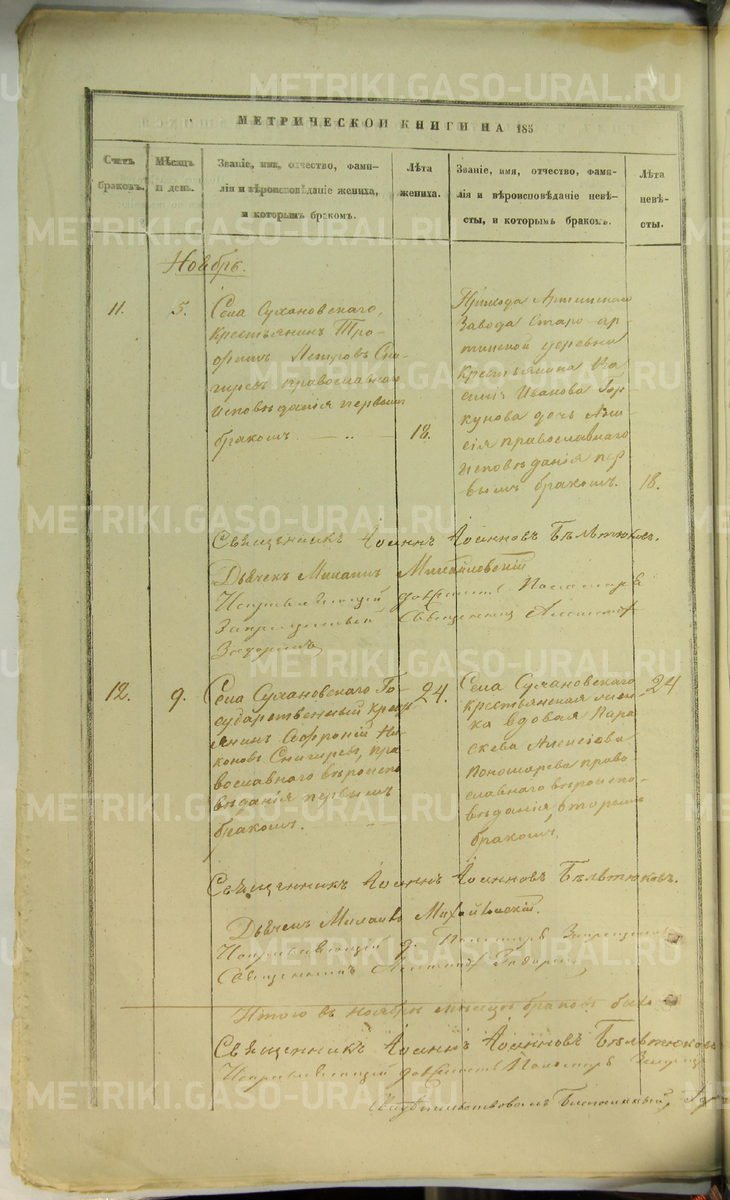 МЕТРИЧЕСКОЙ КНИГИ НА 185
Счетъ браковъ.
Мѣсяцъ и день.
Званіе, имя, отчество, фами-
лія и вѣроисповѣданіе жениха,
и которымъ бракомъ.
Лѣта жениха.
Званіе, имя, отчество, фами-
лія и вѣроисповѣданіе невѣ-
сты, и которымъ бракомъ.
Лѣта невѣ-
сты.
Ноябрь.
11.
5.
Села Сухановскаго,
крестьянинъ Тро-
фимъ Петровъ Сни-
гиревъ православнаго
исповѣданія первымъ
бракомъ.
18.
Прихода Артинскаго
Завода Старо-ар-
тинской деревни
крестьянина
Иванова
дочь
православнаго
исповѣданія пер
вымъ бракомъ.
18.
Священникъ Іоаннъ Іоанновъ Бѣлтюковъ.
Дьячекъ Михаилъ Михайловскій
Исправляющій должность Пономаря
Запрещенный Священникъ
12.
9.
Села Сухановскаго Го-
сударственный крест
янинъ Софроній Ни-
коновъ Снигиревъ, пра-
вославнаго вѣроиспо
вѣданія первымъ
бракомъ.
24.
Села Сухановскаго
крестьянская жен-
ка вдовая Пара
скева Алексіева
Пономарева право-
славнаго вѣроиспо-
вѣданія, вторымъ
бракомъ,
24
Священникъ Іоаннъ Іоанновъ Бѣлтюковъ.
Дьячекъ Михаилъ Михайловскій.
Исправляющій д. Пономаря Запрещенный
Священникъ
Итого въ ноябрѣ мѣсяцѣ браковъ было
Священникъ Іоаннъ Іоанновъ Бѣлтюковъ
Исправляющій должность Пономаря
Свидѣтельствовалъ Благочинный,
METRIKI.GASO-URAL.RU